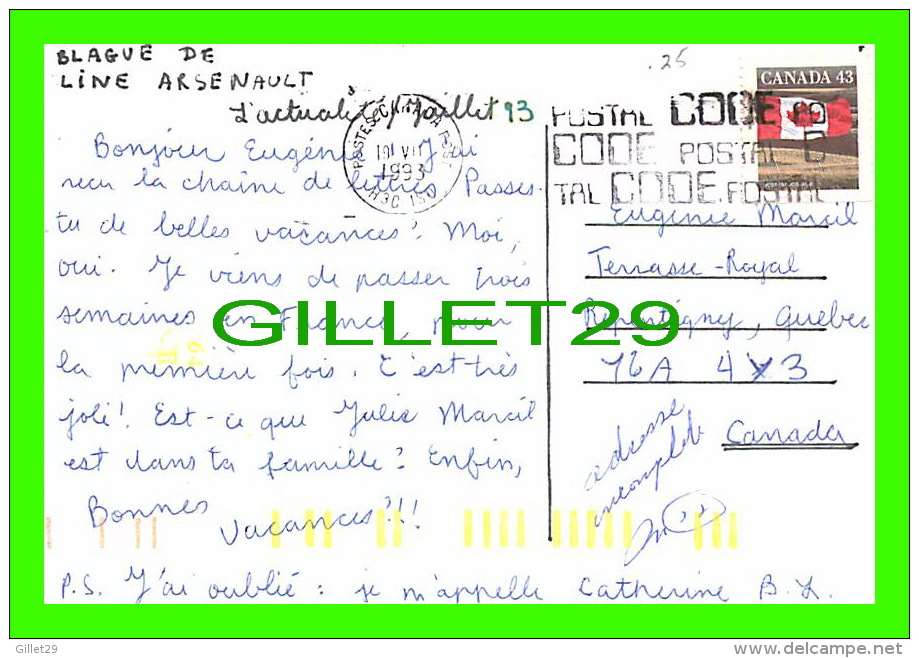 BLAGUE DE
LINE ARSENAULT
L'actualité, Juillet 93
.25
CANADA 43
POSTAL CODE PO
CODE POSTAL C
TAL CODE POSTAL
1993
H3C 1S0
Bonjour Eugénie. J'ai
reçu la chaîne de lettres. Passes-
tu de belles vacances? Moi,
oui. Je viens de passer trois
semaines en France, pour
la première fois. C'est très
joli! Est-ce que Julie Marcil
est dans ta famille? Enfin,
Bonnes
vacances!!!
P.S. J'ai oublié : je m'appelle Catherine B. L.
Eugénie Marcil
Terrasse-Royal
Repentigny, Quebec
J6A 4Y3
Canada
adresse
incomplete
GILLET29
Gillet29
www.delcampe.net